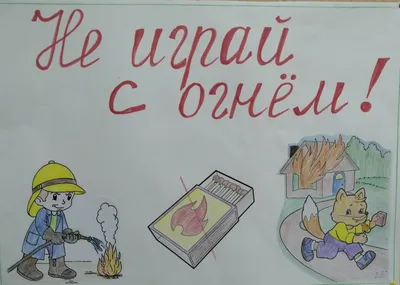 Не играй
с огнём!